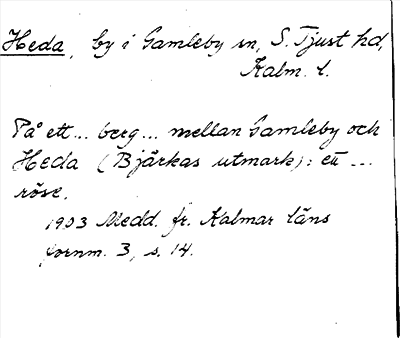 Heda, by i Gamleby sn, S. Tjust hd,
Kalm. l.
På ett ... berg ... mellan Gamleby och
Heda (Bjärkas utmark): ett ...
röse.
1903 Medd. fr. Kalmar läns
fornm. 3, s. 14.